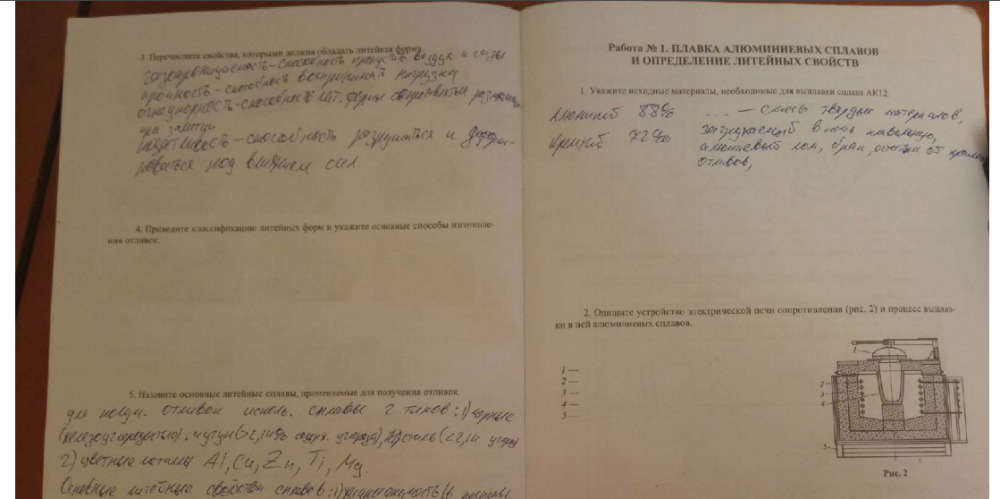 3. Перечислите свойства, которыми должна обладать литейная форма.
газопроницаемость – способность пропустить воздух и газы
прочность – способность воспринимать нагрузки
огнеупорность – способность лит. формы сопротивляться
при заливке
податливость – способность разрушаться и деформи-
роваться под влиянием сил.
4. Приведите классификацию литейных форм и укажите основные способы изготовле-
ния отливок.
5. Назовите основные литейные сплавы, применяемые для получения отливок.
для получ. отливок исполь. сплавы 2 типов: 1) черные
(железоуглеродистые). чугун (>2,14% углерода), сталь (<2,14 углерода)
2) цветные металлы Al, Cu, Zn, Ti, Mg.
Основные литейные свойства сплавов: 1) жидкотекучесть
Работа № 1. ПЛАВКА АЛЮМИНИЕВЫХ СПЛАВОВ
И ОПРЕДЕЛЕНИЕ ЛИТЕЙНЫХ СВОЙСТВ
1. Укажите исходные материалы, необходимые для выплавки сплава АК12.
Алюминий 88%
Кремний 12%
– смесь твердых материалов,
загружаемый в печь
лом, брак, от
отливов,
2. Опишите устройство электрической печи сопротивления (рис. 2) и процесс выплав-
ки в ней алюминиевых сплавов.
1 —
2 —
3 —
4 —
5 —
1
2
3
4
5
Рис. 2